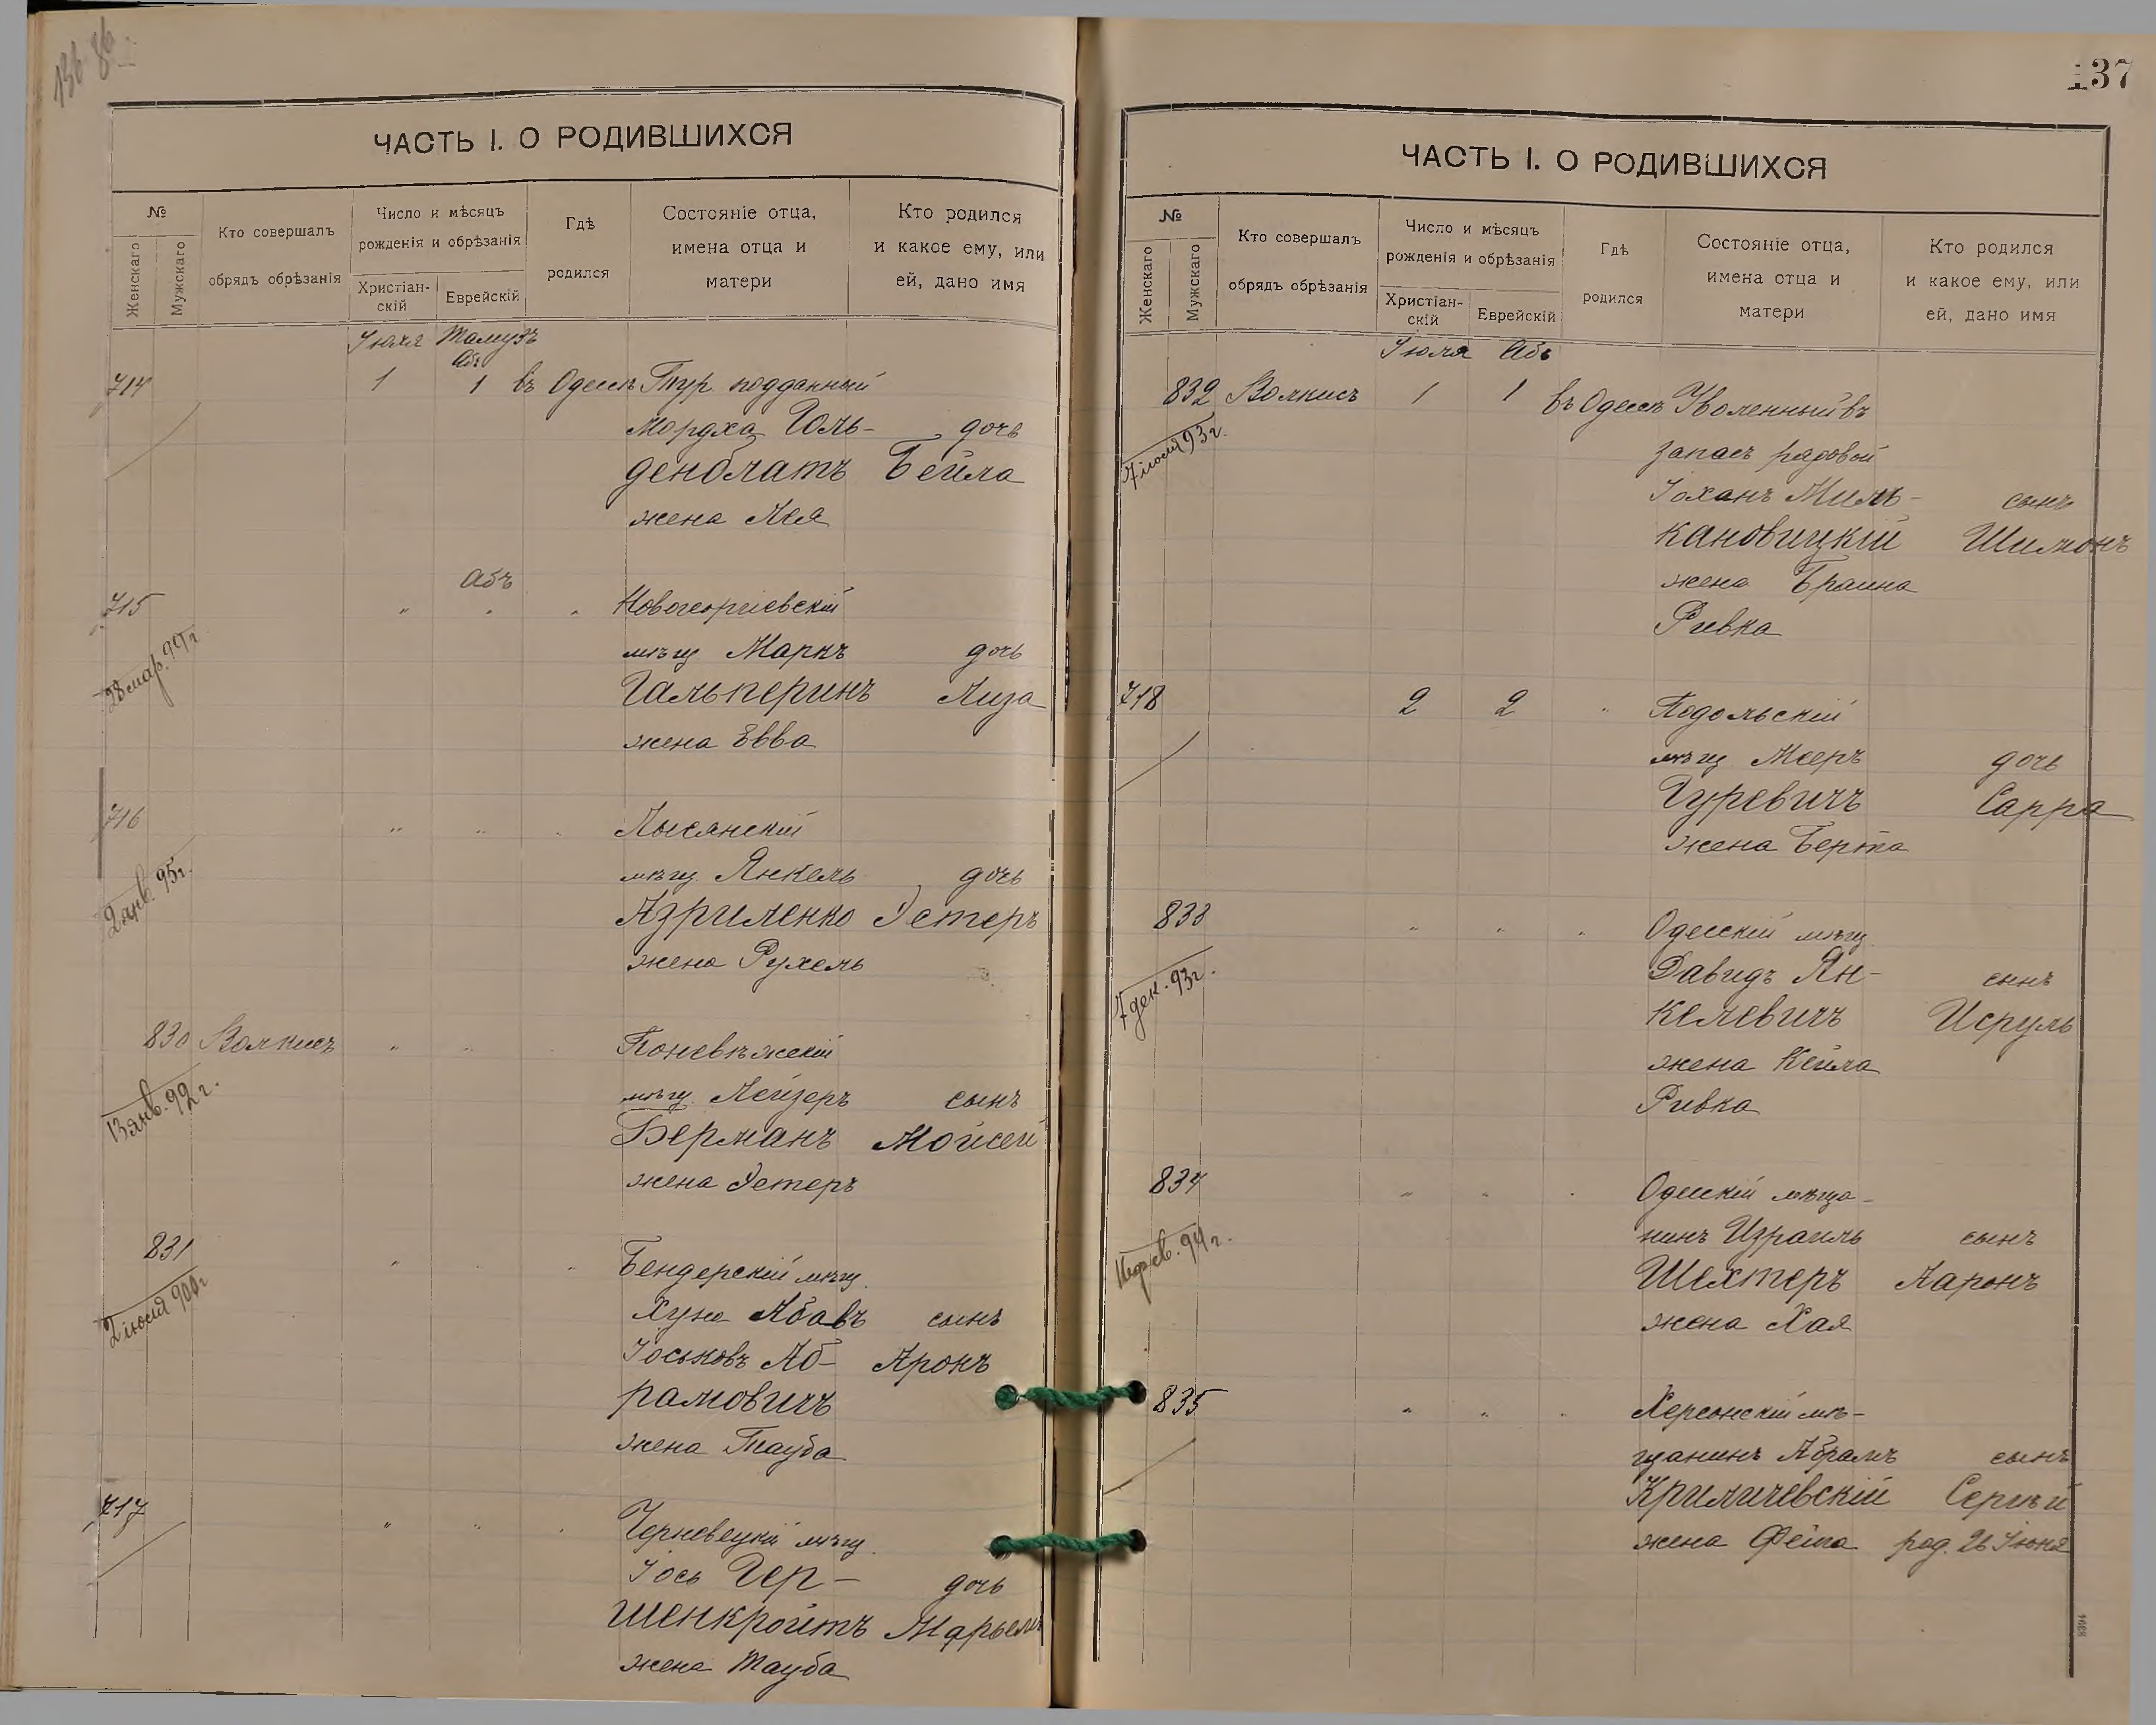 136 86
ЧАСТЬ I. О РОДИВШИХСЯ
№
Женскаго
Мужскаго
Кто совершалъ
обрядъ обрѣзанія
Число и мѣсяцъ
рожденія и обрѣзанія
Христіан-
скій
Еврейскій
Гдѣ
родился
Состояніе отца,
имена отца и
матери
Кто родился
и какое ему, или
ей, дано имя
Іюля Тамузъ
Абъ
714 1 1 въ Одессѣ Тур подданный
Мордха Голь- дочь
денблатъ Бейла
жена Лея
Абъ
715 " " " Новогеоргіевскій
28 мар. 99 г.
мѣщ Маркъ дочь
Гальперинъ Лиза
жена Евва
716 " " " Лысянскій
2 янв. 95 г.
мѣщ. Янкель дочь
Азриленко Эстеръ
жена Рухель
830 Волкисъ " " " Поневѣжскій
13 янв. 92 г.
мѣщ. Лейзеръ сынъ
Берманъ Мойсей
жена Эстеръ
831 " " " Бендерскій мѣщ.
2 іюля 900 г
Хуна Абавъ сынъ
Іоськовъ Аб- Аронъ
рамовичъ
жена Тауба
717 " " " Черновецкій мѣщ.
Іось Гер- дочь
шенкройтъ Марьемъ
жена Тауба
137
ЧАСТЬ I. О РОДИВШИХСЯ
№
Женскаго
Мужскаго
Кто совершалъ
обрядъ обрѣзанія
Число и мѣсяцъ
рожденія и обрѣзанія
Христіан-
скій
Еврейскій
Гдѣ
родился
Состояніе отца,
имена отца и
матери
Кто родился
и какое ему, или
ей, дано имя
Іюля Абъ
832 Волкисъ 1 1 въ Одессѣ Уволенный въ
7 іюля 93 г.
запасъ рядовой
Іоханъ Миль- сынъ
кановицкій Шимонъ
жена Браина
Ривка
718 2 2 " Подольскій
мѣщ Мееръ дочь
Гуревичъ Сарра
жена Берта
833 " " " Одесскій мѣщ.
7 дек. 93 г.
Давидъ Ян- сынъ
келевичъ Исруль
жена Кейла
Ривка
834 " " " Одесскій мѣща-
нинъ Израиль сынъ
Шехтеръ Ааронъ
жена Хая
835 " " " Херсонскій мѣ-
щанинъ Абрамъ сынъ
Криличевскій Сергѣй
жена Фейга род. 26 Іюня